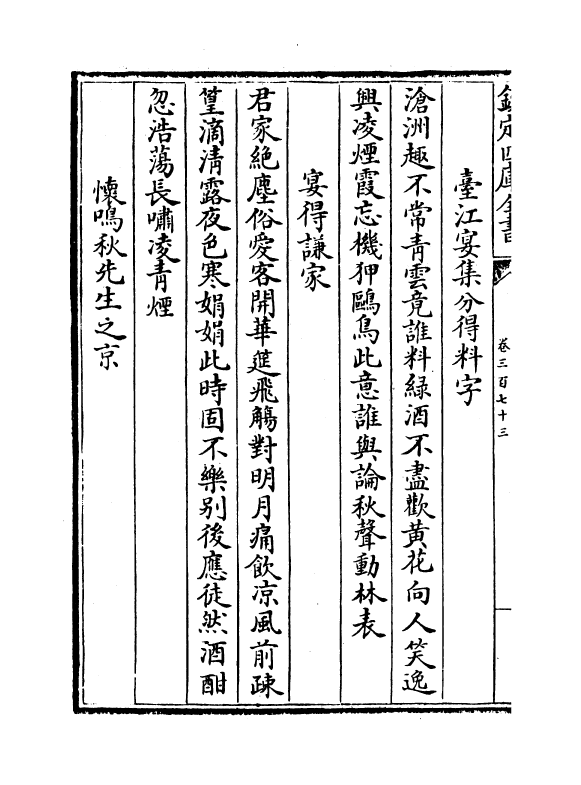 欽定四庫全書
卷三百七十三
臺江宴集分得料字
滄洲趣不常青雲竟誰料緑酒不盡歡黄花向人笑逸
興凌煙霞忘機狎鷗鳥此意誰與論秋聲動林表
宴得謙家
君家絶塵俗愛客開華筵飛觴對明月痛飲凉風前疎
篁滴清露夜色寒娟娟此時固不樂别後應徒然酒酣
忽浩蕩長嘯凌青煙
懷鳴秋先生之京